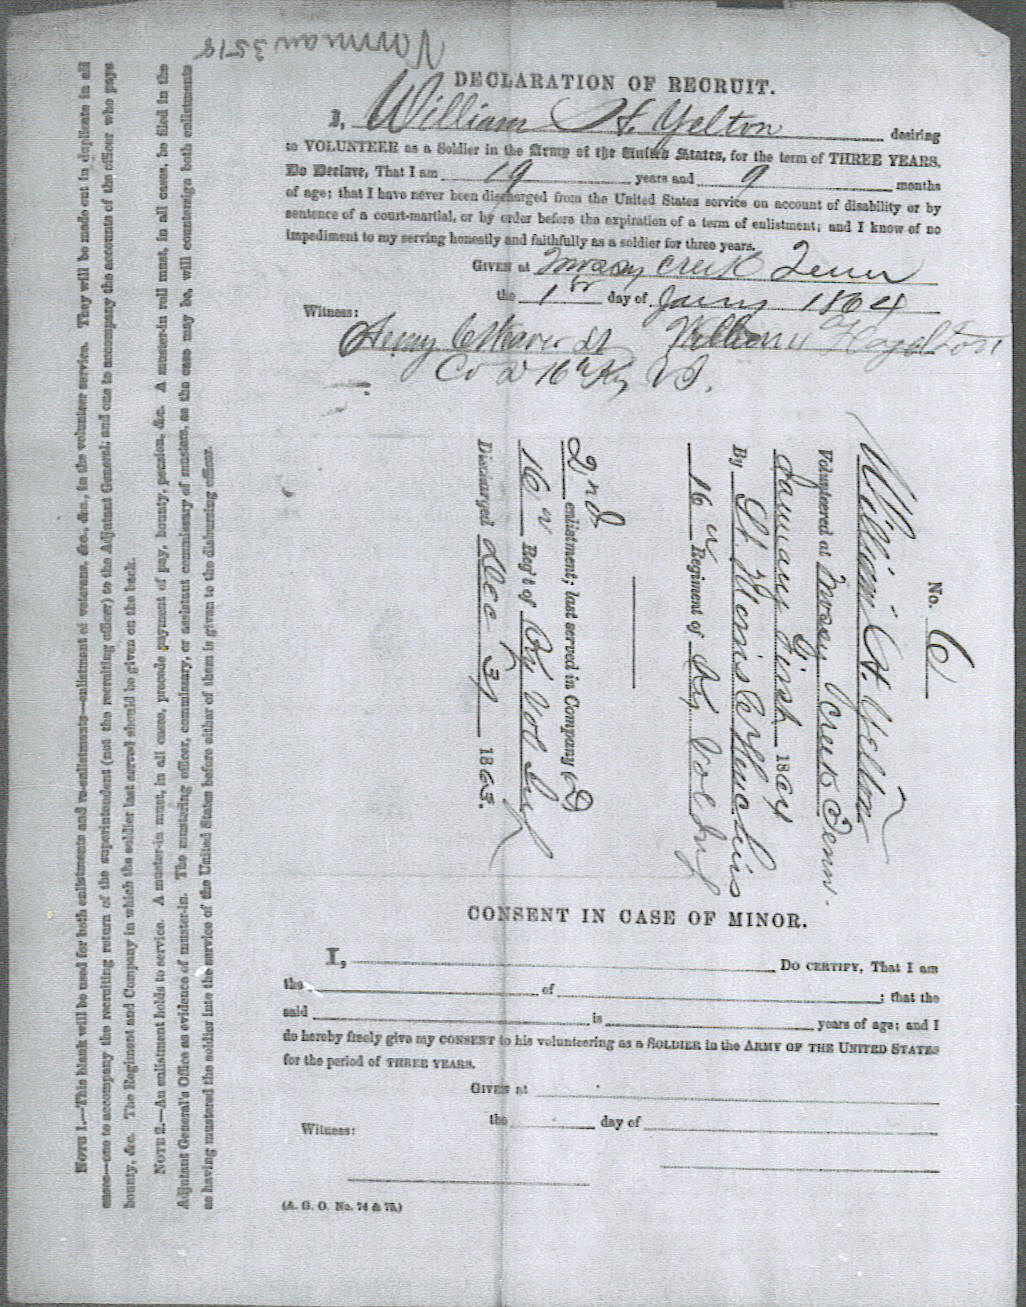 Norman 3518
DECLARATION OF RECRUIT.
I, William H. Yelton desiring
to VOLUNTEER as a Soldier in the Army of the United States, for the term of THREE YEARS,
Do Declare, That I am 19 years and 9 months
of age; that I have never been discharged from the United States service on account of disability or by
sentence of a court-martial, or by order before the expiration of a term of enlistment; and I know of no
impediment to my serving honestly and faithfully as a soldier for three years.
GIVEN at Mossy Creek Tenn
the 1st day of Jany 1864
Witness:
Henry William H Yelton
Co D 16th Ky V I.
No. 6
William H. Yelton
Volunteered at Mossy Creek Tenn.
January First 1864
By Lt
16 Regiment of Ky Vol Inf
2nd enlistment; last served in Company D
16 Reg't of Ky Vol Inf
Discharged Dec 31 1863.
CONSENT IN CASE OF MINOR.
I, DO CERTIFY, That I am
the of ; that the
said is years of age; and I
do hereby freely give my CONSENT to his volunteering as a SOLDIER in the ARMY OF THE UNITED STATES
for the period of THREE YEARS.
GIVEN at
the day of
Witness:
(A. G. O. No. 74 & 75.)
NOTE 1.—This blank will be used for both enlistments and re-enlistments—enlistment of veterans, &c., &c., in the volunteer service. They will be made out in duplicate in all
cases—one to accompany the recruiting return of the superintendent (not the recruiting officer) to the Adjutant General; and one to accompany the accounts of the officer who pays
bounty, &c. The Regiment and Company in which the soldier last served should be given on the back.
NOTE 2.—An enlistment holds to service. A muster-in must, in all cases, precede payment of pay, bounty, pension, &c. A muster-in roll must, in all cases, be filed in the
Adjutant General's Office as evidence of muster-in. The mustering officer, commissary, or assistant commissary of musters, as the case may be, will countersign both enlistments
as having mustered the soldier into the service of the United States before either of them is given to the disbursing officer.